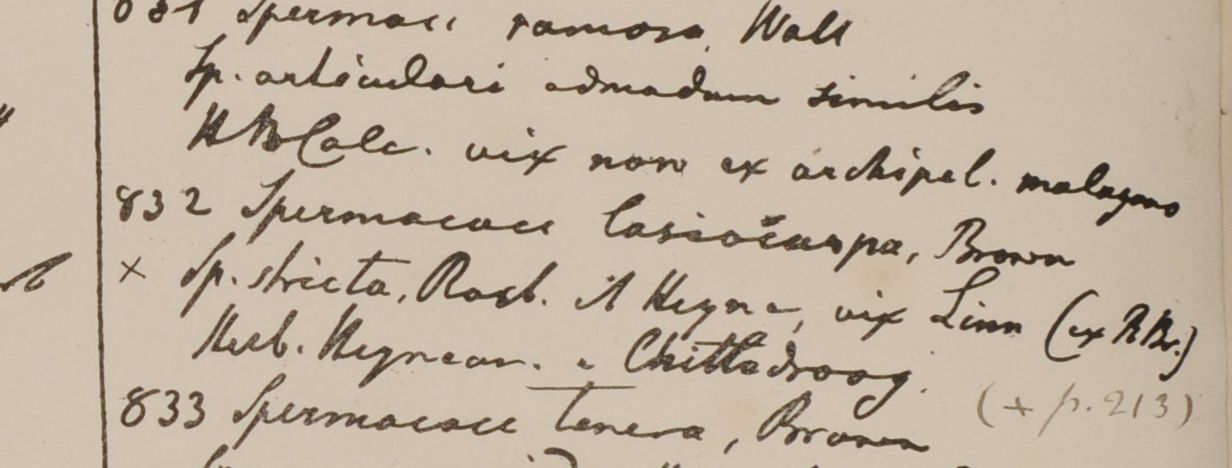 831 Spermacoce ramosa, Wall
Sp. articulari admodum similis
HBCalc. vix non ex archipel. malayano
832 Spermacoce lasiocarpa, Brown
× Sp. stricta, Roxb. & Heyne, vix Linn (ex RBr.)
Herb. Heynean. e Chittledroog.
(+ p. 213)
833 Spermacoce tenera, Brown